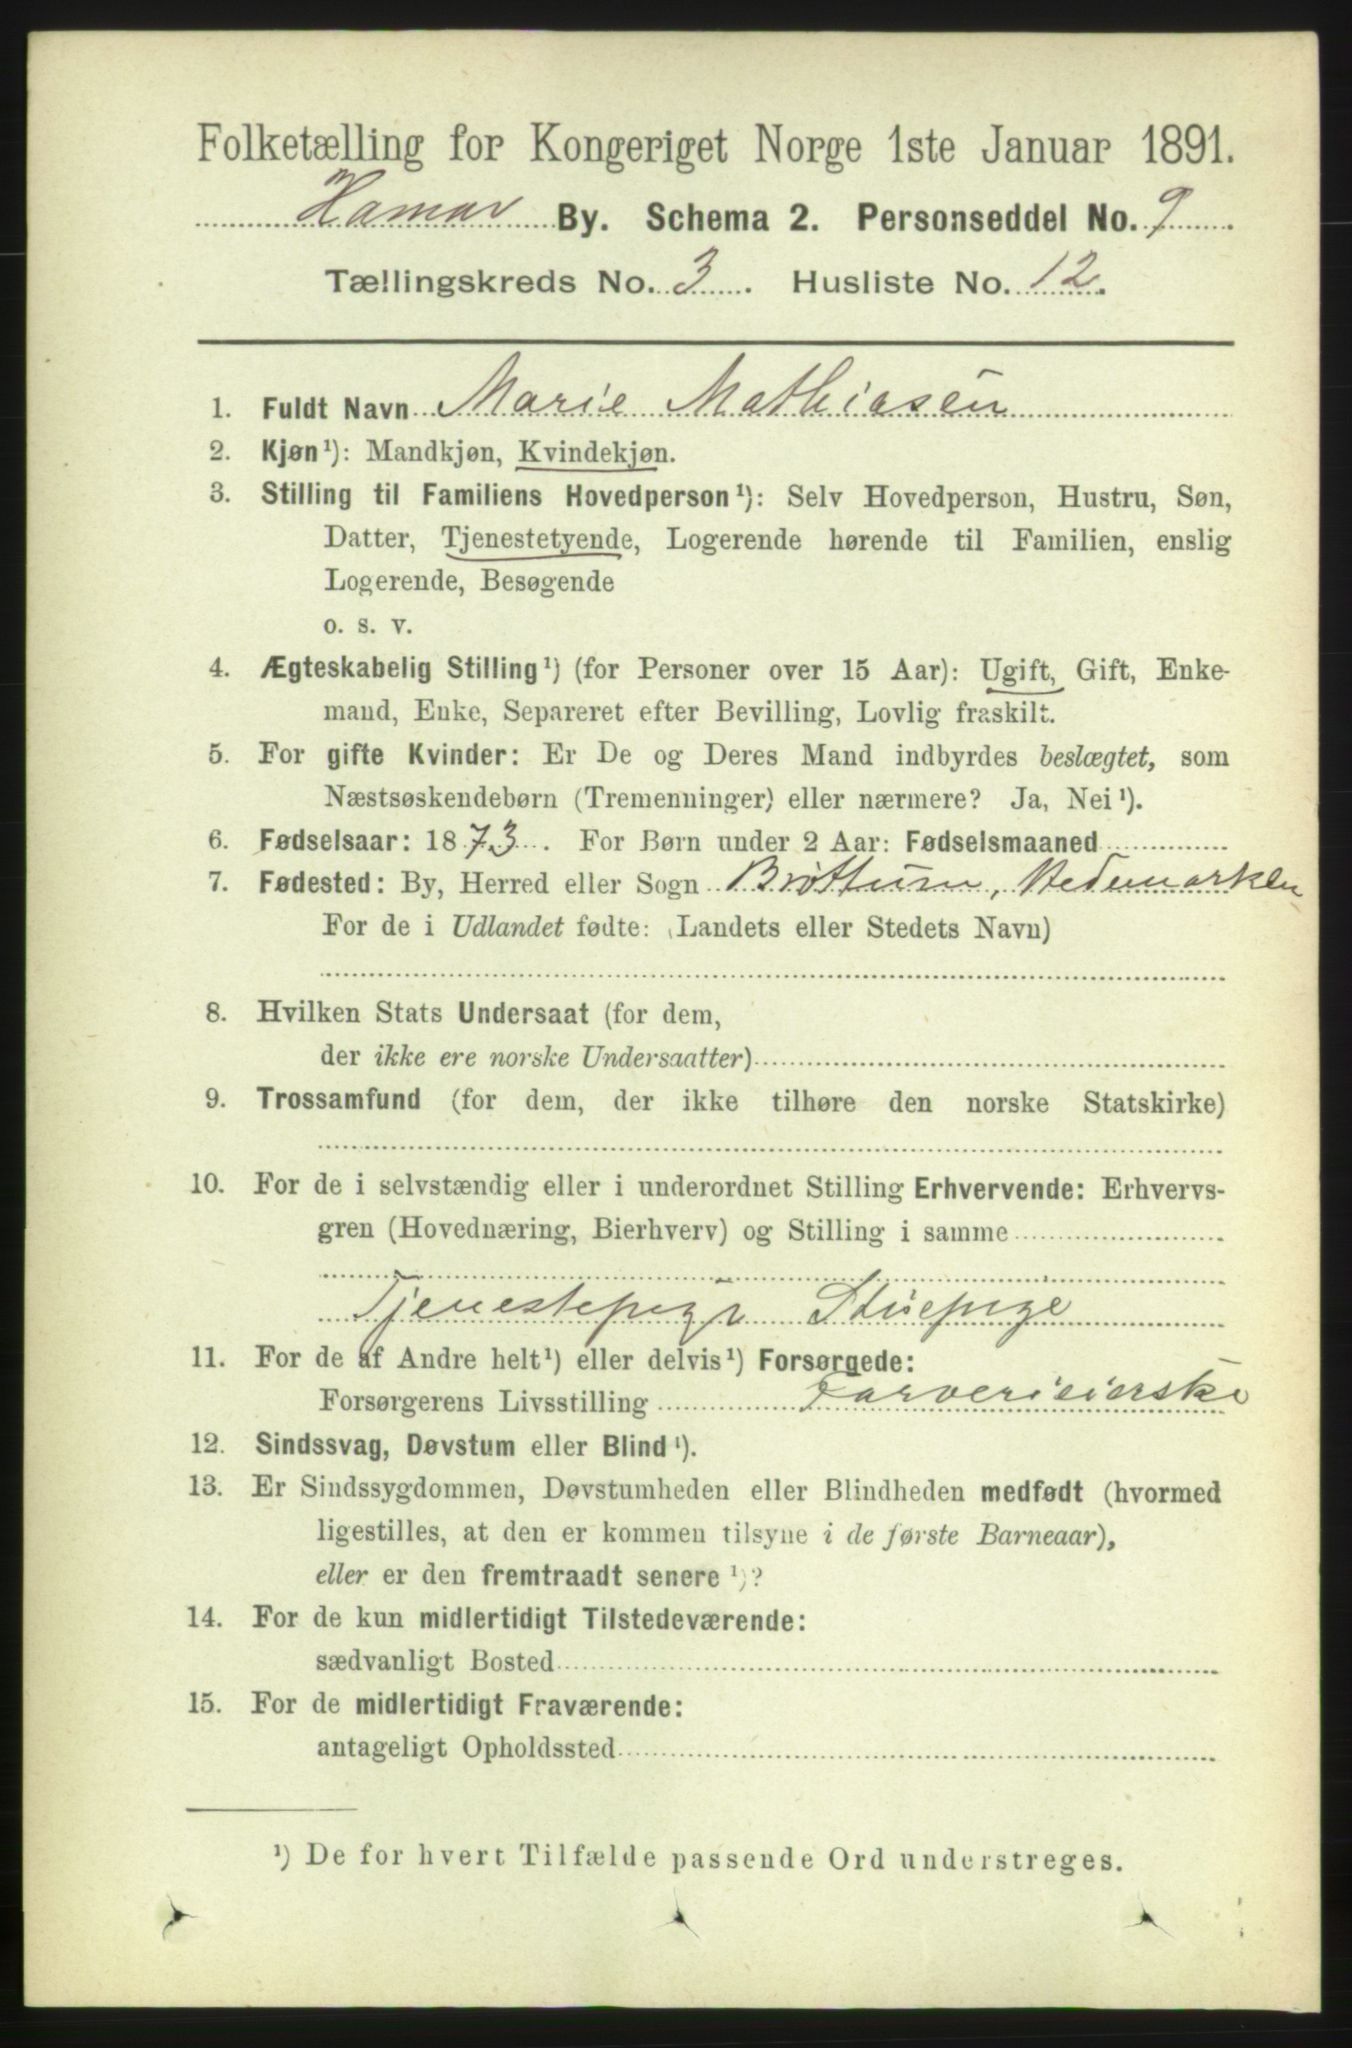 Folketælling for Kongeriget Norge 1ste Januar 1891.
Hamar By. Schema 2. Personseddel No. 9
Tællingskreds No. 3. Husliste No. 12.
1. Fuldt Navn Marie Mathiasen
2. Kjøn¹): Mandkjøn, Kvindekjøn.
3. Stilling til Familiens Hovedperson¹): Selv Hovedperson, Hustru, Søn,
Datter, Tjenestetyende, Logerende hørende til Familien, enslig
Logerende, Besøgende
o. s. v.
4. Ægteskabelig Stilling¹) (for Personer over 15 Aar): Ugift, Gift, Enke-
mand, Enke, Separeret efter Bevilling, Lovlig fraskilt.
5. For gifte Kvinder: Er De og Deres Mand indbyrdes beslægtet, som
Næstsøskendebørn (Tremenninger) eller nærmere? Ja, Nei¹).
6. Fødselsaar: 1873. For Børn under 2 Aar: Fødselsmaaned
7. Fødested: By, Herred eller Sogn Brøttum, Hedemarken
For de i Udlandet fødte: (Landets eller Stedets Navn)
8. Hvilken Stats Undersaat (for dem,
der ikke ere norske Undersaatter)
9. Trossamfund (for dem, der ikke tilhøre den norske Statskirke)
10. For de i selvstændig eller i underordnet Stilling Erhvervende: Erhvervs-
gren (Hovednæring, Bierhverv) og Stilling i samme
Tjenestepige Stuepige
11. For de af Andre helt¹) eller delvis¹) Forsørgede:
Forsørgerens Livsstilling Farverieierske
12. Sindssvag, Døvstum eller Blind¹).
13. Er Sindssygdommen, Døvstumheden eller Blindheden medfødt (hvormed
ligestilles, at den er kommen tilsyne i de første Barneaar),
eller er den fremtraadt senere¹)?
14. For de kun midlertidigt Tilstedeværende:
sædvanligt Bosted
15. For de midlertidigt Fraværende:
antageligt Opholdssted
¹) De for hvert Tilfælde passende Ord understreges.